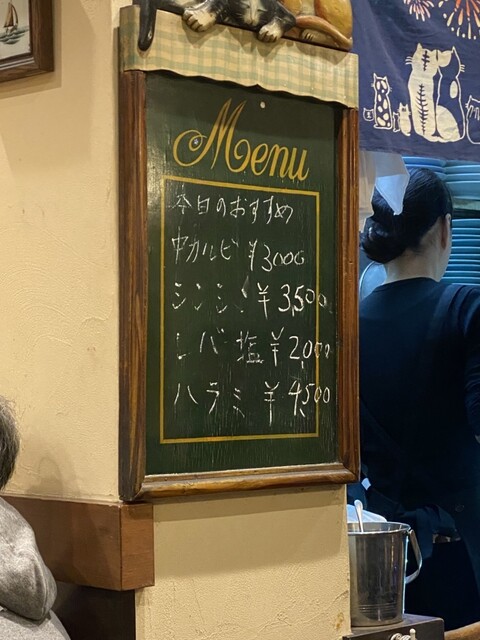 Menu
本日のおすすめ
中カルビ ¥3000
シンシン ¥3,500
レバー塩 ¥2,000
ハラミ ¥4,500